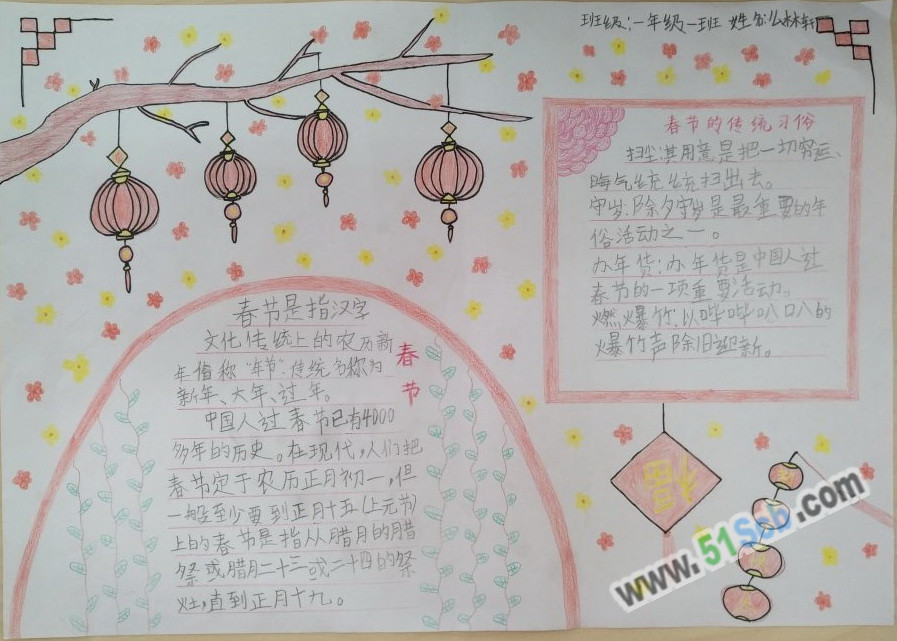 班级:一年级一班 姓名:么林轩
春节的传统习俗
扫尘:其用意是把一切穷运、
晦气统统扫出去。
守岁:除夕守岁是最重要的年
俗活动之一。
办年货:办年货是中国人过
春节的一项重要活动。
燃爆竹:以哔哔叭叭的
爆竹声除旧迎新。
春节是指汉字
文化传统上的农历新
年俗称"年节".传统名称为
新年、大年、过年。
春节
中国人过春节已有4000
多年的历史。在现代,人们把
春节定于农历正月初一,但
一般至少要到正月十五(上元节)
上的春节是指从腊月的腊
祭或腊月二十三或二十四的祭
灶,直到正月十九。
福
www.51Ssb.com